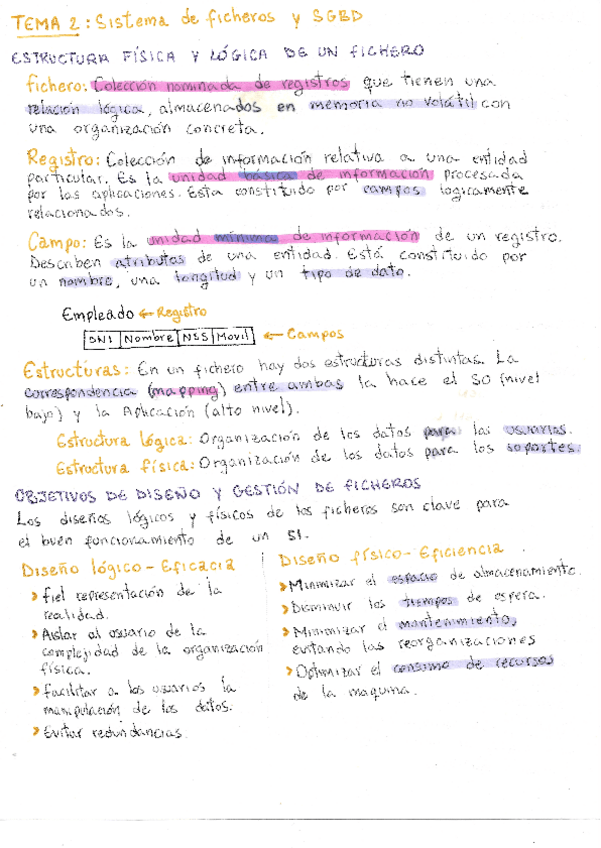 TEMA 2: Sistema de ficheros y SGBD
ESTRUCTURA FÍSICA Y LÓGICA DE UN FICHERO
Fichero: Colección nominada de registros que tienen una
relación lógica, almacenados en memoria no volátil con
una organización concreta.
Registro: Colección de información relativa a una entidad
particular. Es la unidad básica de información procesada
por las aplicaciones. Esta constituido por campos logicamente
relacionados.
Campo: Es la unidad mínima de información de un registro.
Describen atributos de una entidad. Está constituido por
un nombre, una longitud y un tipo de dato.
Empleado ← Registro
DNI Nombre NSS Movil ← Campos
Estructuras: En un fichero hay dos estructuras distintas. La
correspondencia (mapping) entre ambas la hace el SO (nivel
bajo) y la Aplicación (alto nivel).
Estructura lógica: Organización de los datos para los usuarios.
Estructura física: Organización de los datos para los soportes.
OBJETIVOS DE DISEÑO Y GESTIÓN DE FICHEROS
Los diseños lógicos y físicos de los ficheros son clave para
el buen funcionamiento de un SI.
Diseño lógico - Eficacia
> Fiel representación de la
realidad.
> Aislar al usuario de la
complejidad de la organización
física.
> Facilitar a los usuarios la
manipulación de los datos.
> Evitar redundancias.
Diseño físico - Eficiencia
> Minimizar el espacio de almacenamiento.
> Disminuir los tiempos de espera.
> Minimizar el mantenimiento,
evitando las reorganizaciones
> Optimizar el consumo de recursos
de la maquina.